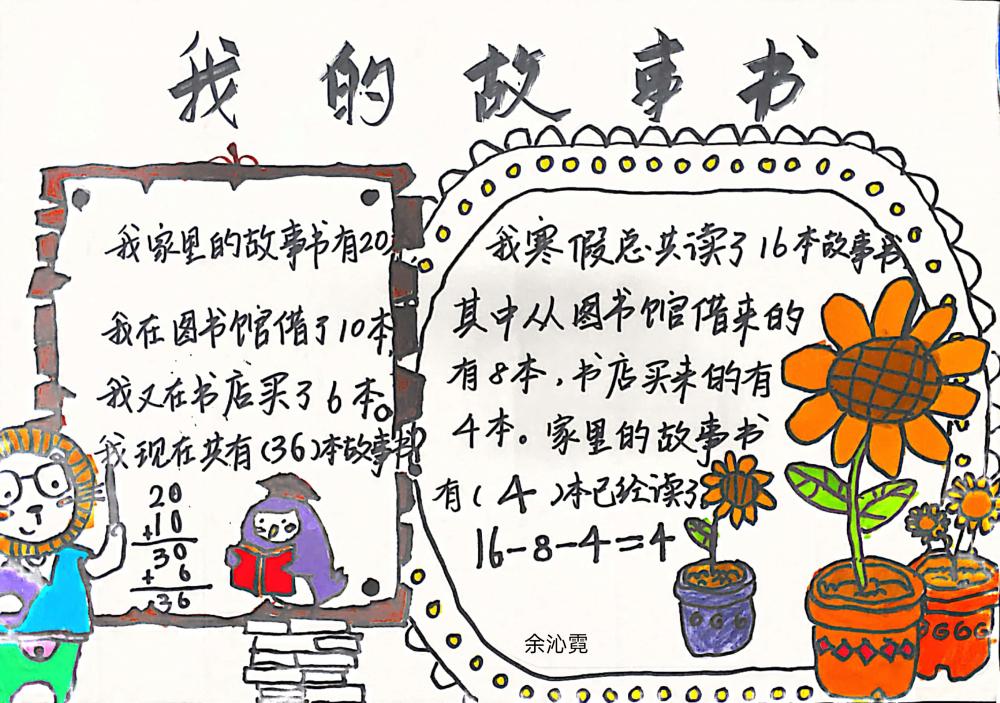 我的故事书
我家里的故事书有20
我在图书馆借了10本
我又在书店买了6本。
我现在共有(36)本故事书?
20
+10
30
+ 6
36
我寒假总共读了16本故事书
其中从图书馆借来的
有8本,书店买来的有
4本。家里的故事书
有(4)本已经读了
16-8-4=4
余沁霓